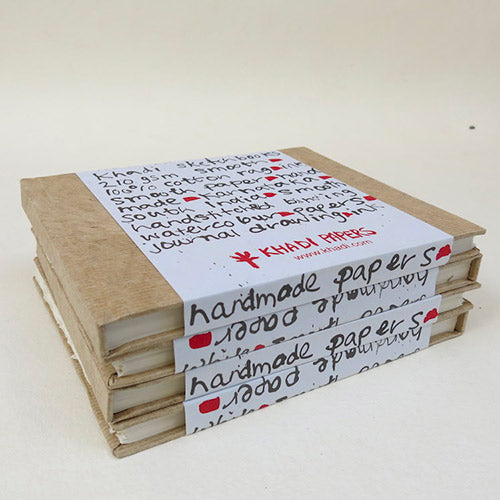 khadi sketchbooks
210 gsm smooth
100% cotton rag
smooth paper hand
made in
south India smooth
handstitched
watercolour papers
journal drawing ink
KHADI PAPERS
www.khadi.com
handmade papers
handmade
paper
white
handmade papers
handmade
paper